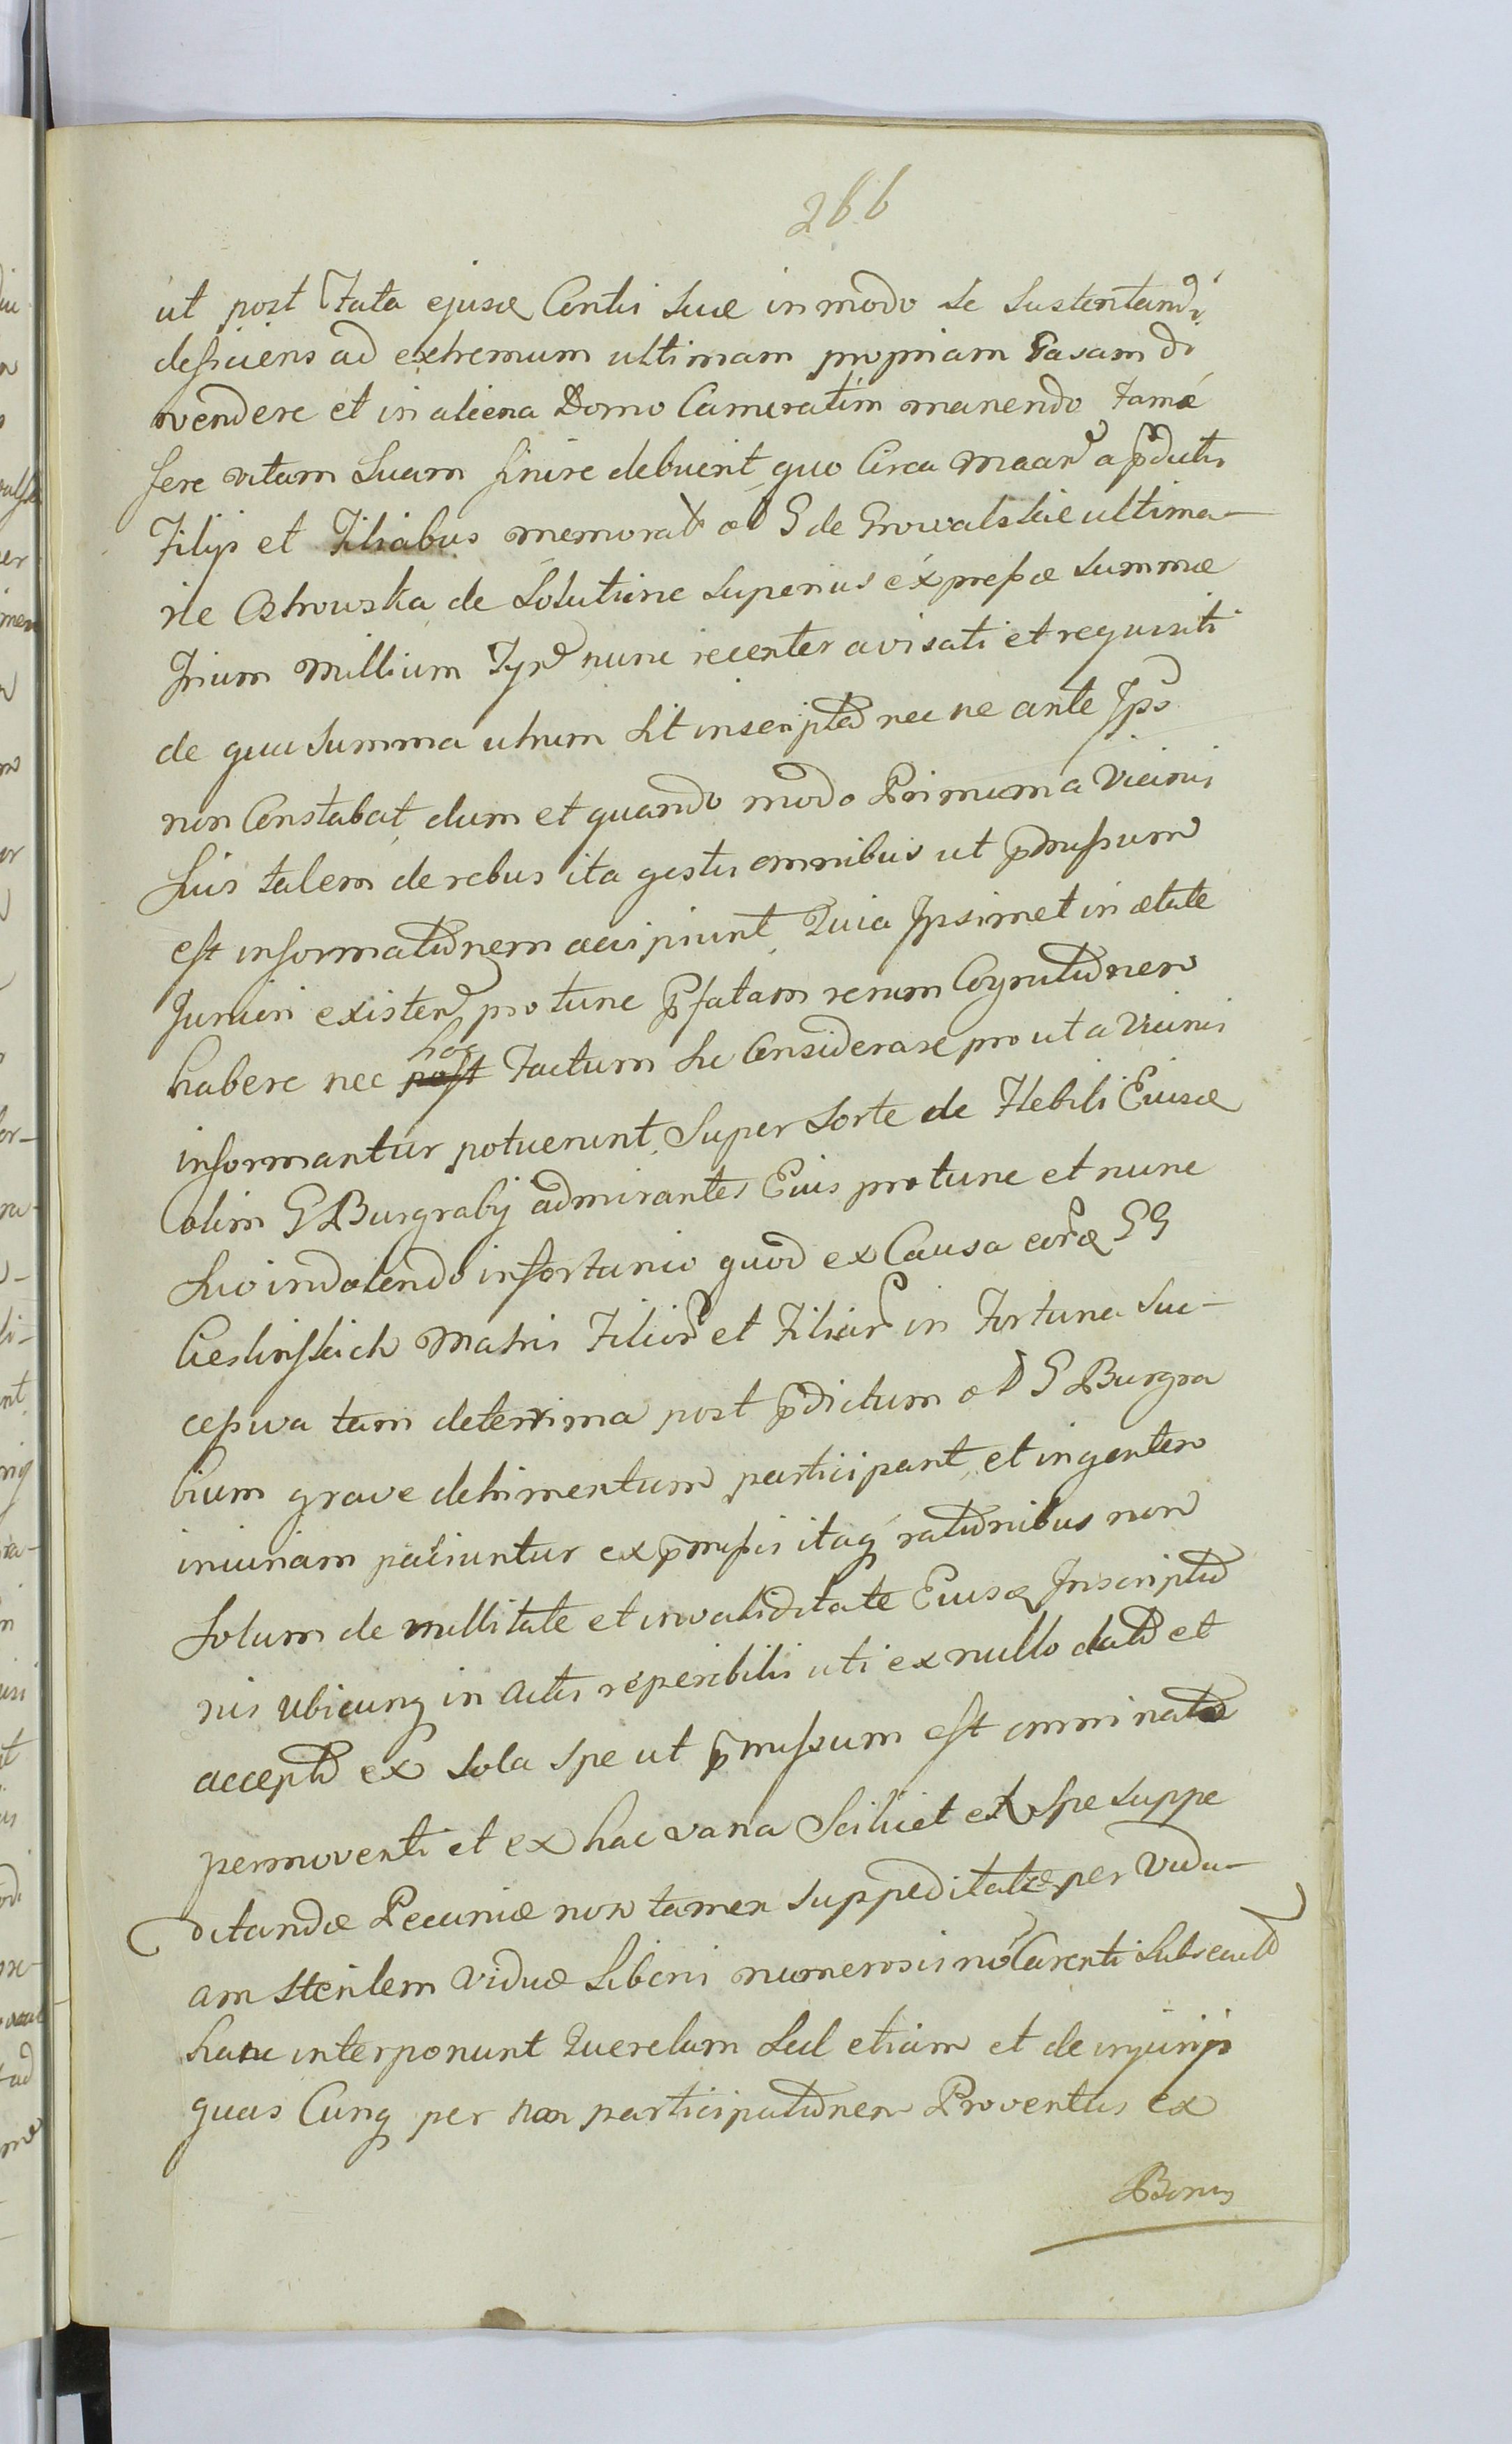 266
ut post Fata ejusd Contis suæ in modo se sustentandi
deficiens ad extremum ultimam propriam Casam di
vendere et in aliena Domo Cameratim manendo famæ
fere vitam suam finire debuerit, quo circa maar a pdictis
Filijs et Filiabus memorat ol G de Growalskie ultima-
rie Ostrowska de solutione superius expressæ summæ
Trium millium Tyn nunc recenter avisati et requisiti
de qua summa utrum sit inscripta nec ne ante Ips
non Constabat, dum et quando modo Primum a Vicinis
suis talem de rebus ita gestis omnibus ut pmissum
est informationem accipiunt, Quia Ipsimet in ætate
Juniori existen pro tunc pfatam rerum Cognitionem
habere nec post hoc Factum sic Considerare pro ut a Vicinis
informantur potuerunt, super sorte de Flebili Eiusd
olim G Burgrabij admirantes Eius pro tunc et nunc
suo indolendo infortunio quod ex Causa eord GG
Cieslinskich Matris Filior et Filiar in Fortuna suc-
cessiva tam deterrima post pdictum ol G Burgra
bium grave detrimentum participant, et ingentem
iniuriam patiuntur ex pmissis itaq rationibus non
solum de nullitate et invaliditate Eiusd Inscriptio
nis ubicunq in Actis reperibilis uti ex nullo dato et
accepto ex sola spe ut pmissum est omni nato
permoventi et ex hac vana scilicet ex spe suppe
ditandæ Pecuniæ non tamen suppeditatæ per Vidu-
am sterilem Viduæ Liberis numerosis no Carenti subsecuto
hanc interponunt Querelam sed etiam et de injurijs
quas Cunq per non participationem Proventus ex
Bonis